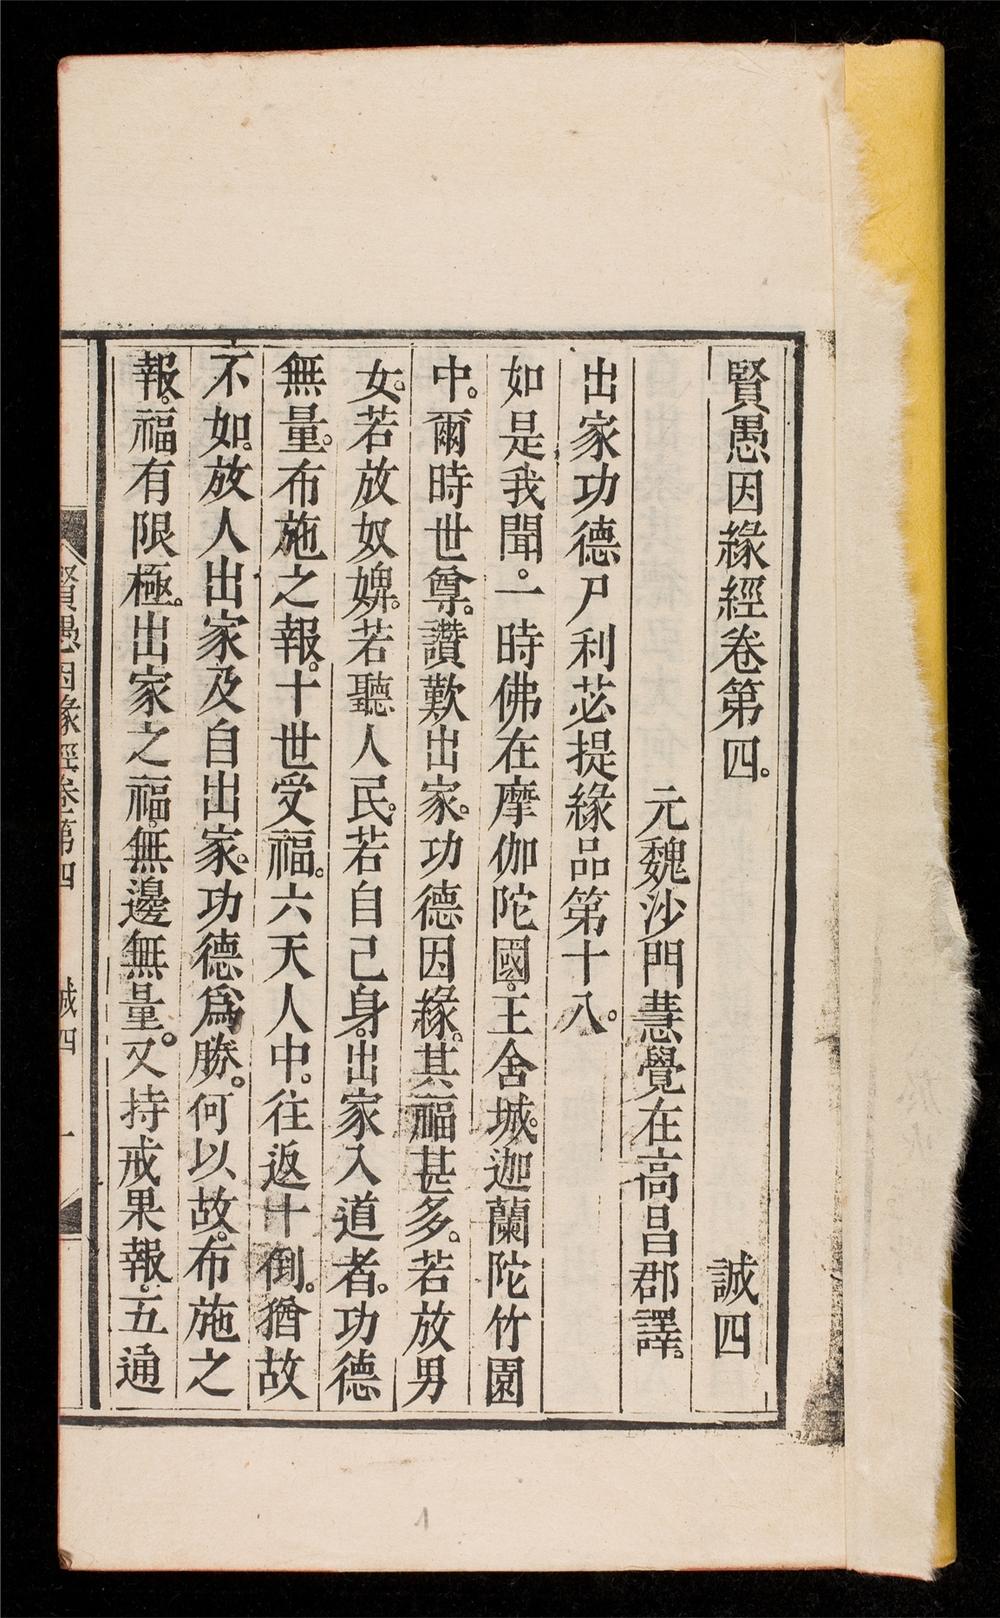 賢愚因緣經卷第四。 誠四
元魏沙門慧覺在高昌郡譯。
出家功德尸利苾提緣品第十八。
如是我聞。一時佛在摩伽陀國。王舍城。迦蘭陀竹園
中。爾時世尊。讚歎出家。功德因緣。其福甚多。若放男
女。若放奴婢。若聽人民。若自己身。出家入道者。功德
無量。布施之報。十世受福。六天人中。往返十倒。猶故
不如。放人出家及自出家。功德為勝。何以故。布施之
報。福有限極。出家之福。無邊無量。又持戒果報。五通
賢愚因緣經卷第四 誠四 一